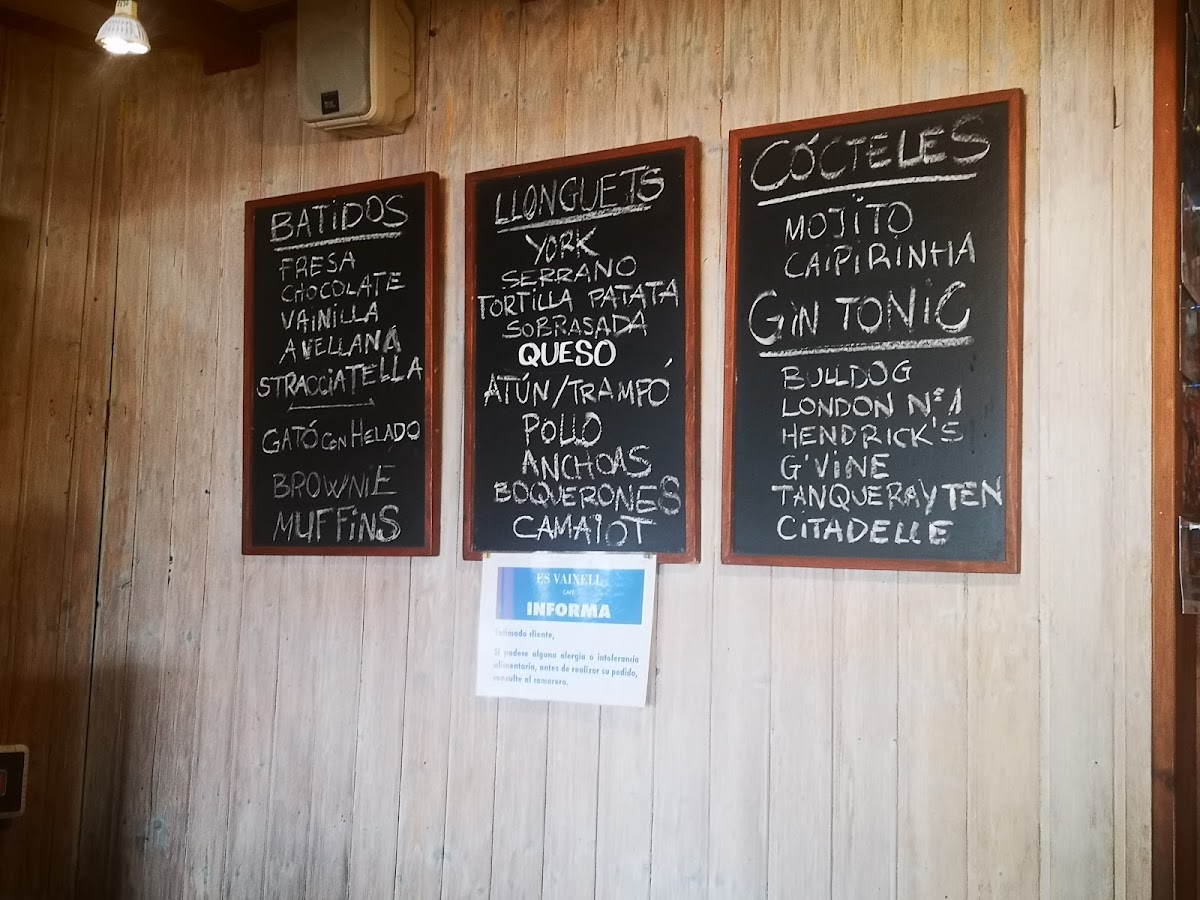 BATIDOS
FRESA
CHOCOLATE
VAINILLA
AVELLANA
STRACCIATELLA
GATÓ CON HELADO
BROWNIE
MUFFINS
LLONGUETS
YORK
SERRANO
TORTILLA PATATA
SOBRASADA
QUESO
ATÚN/TRAMPÓ
POLLO
ANCHOAS
BOQUERONES
CAMAIOT
CÓCTELES
MOJITO
CAIPIRINHA
GIN TONIC
BULLDOG
LONDON Nº1
HENDRICK'S
G'VINE
TANQUERAY TEN
CITADELLE
ES VAIXELL
CAFÈ
INFORMA
Estimado cliente,
Si padece alguna alergia o intolerancia
alimentaria, antes de realizar su pedido,
consulte al camarero.